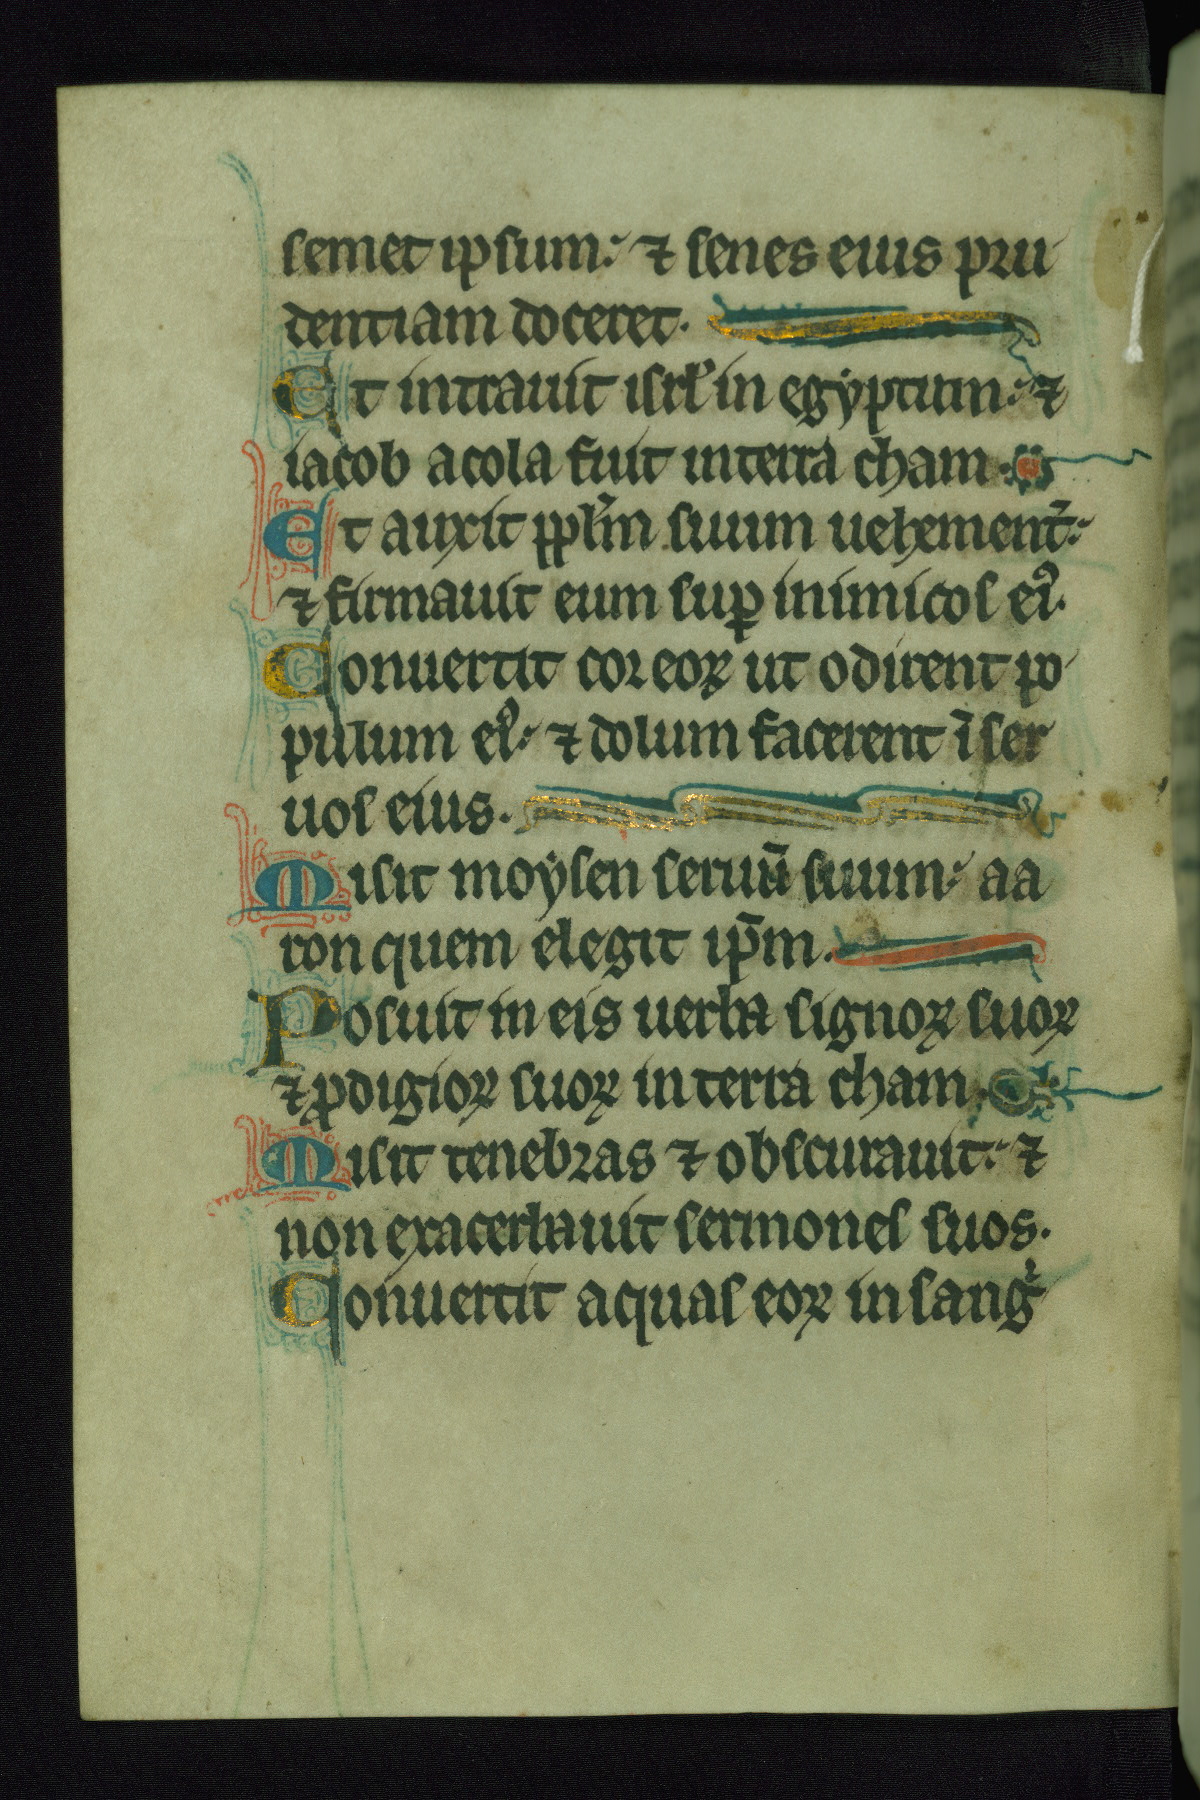 semet ipsum: ⁊ senes eius pru
dentiam doceret.
Et intrauit isrl̓ in egẏptum: ⁊
iacob acola fuit in terra cham.
Et auxit ppl̄m suum uehement̓:
⁊ firmauit eum sup̱ inimicos ei᾿.
Conuertit cor eoꝝ ut odirent po
pulum ei᾿: ⁊ dolum facerent ī ser
uos eius.
Misit moẏsen seruū suum: aa
ron quem elegit ip̄m.
Posuit in eis uerba signoꝝ suoꝝ
⁊ ꝓdigioꝝ suoꝝ in terra cham.
Misit tenebras ⁊ obscurauit: ⁊
non exacerbauit sermones suos.
Conuertit aquas eoꝝ in sang̓